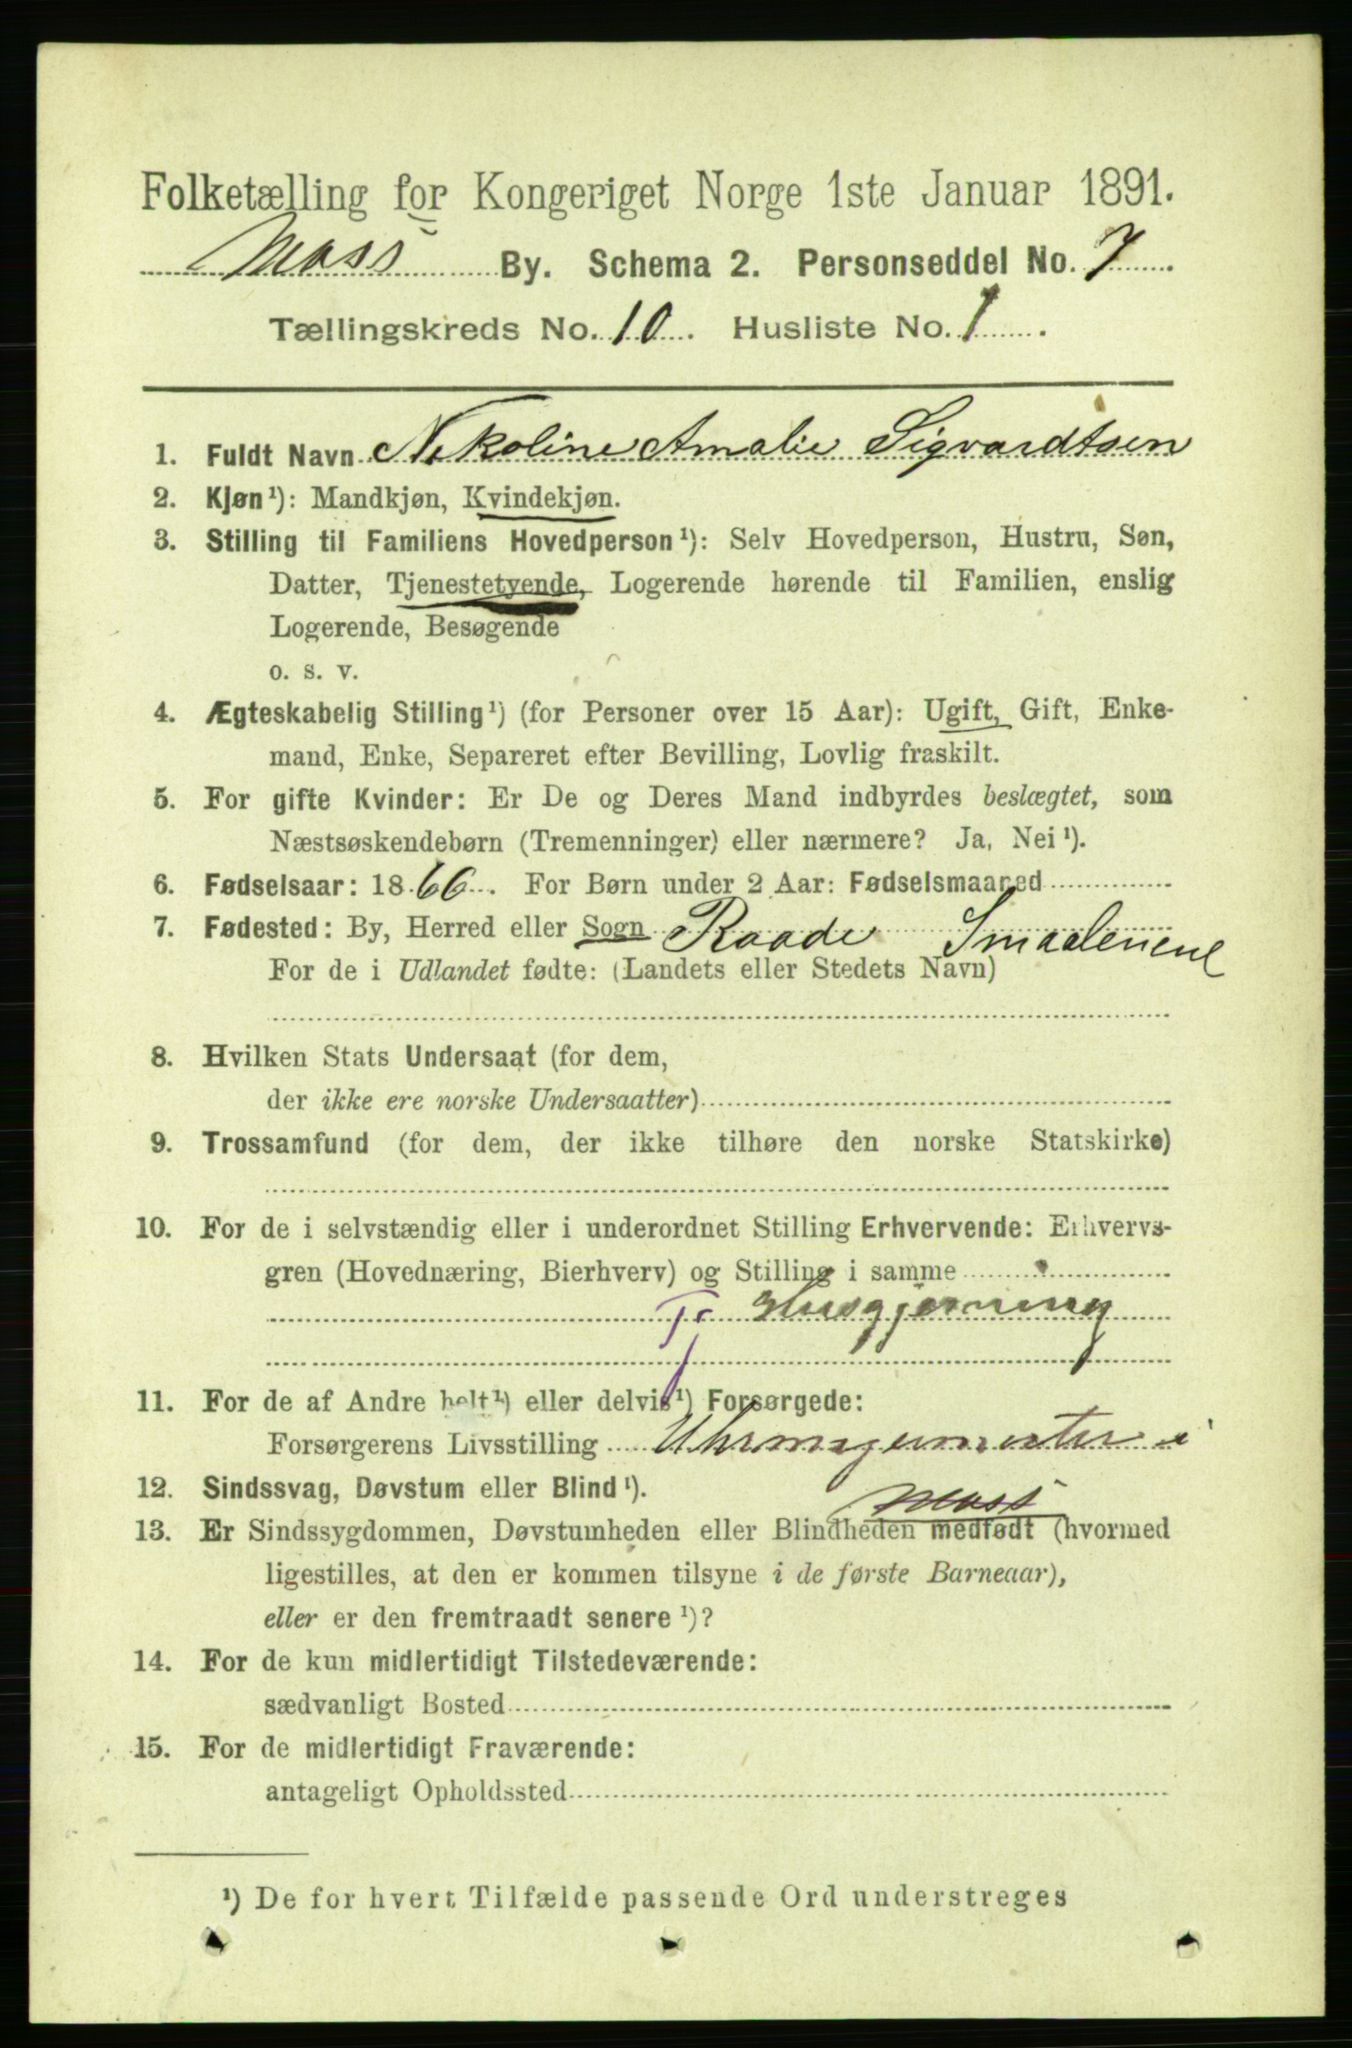 Folketælling for Kongeriget Norge 1ste Januar 1891.
Moss By. Schema 2. Personseddel No. 7.
Tællingskreds No. 10. Husliste No. 1.
1. Fuldt Navn Nikoline Amalie Sigvardtsen
2. Kjøn¹): Mandkjøn, Kvindekjøn.
3. Stilling til Familiens Hovedperson¹): Selv Hovedperson, Hustru, Søn,
Datter, Tjenestetyende, Logerende hørende til Familien, enslig
Logerende, Besøgende
o. s. v.
4. Ægteskabelig Stilling¹) (for Personer over 15 Aar): Ugift, Gift, Enke-
mand, Enke, Separeret efter Bevilling, Lovlig fraskilt.
5. For gifte Kvinder: Er De og Deres Mand indbyrdes beslægtet, som
Næstsøskendebørn (Tremenninger) eller nærmere? Ja, Nei¹).
6. Fødselsaar: 1866. For Børn under 2 Aar: Fødselsmaaned
7. Fødested: By, Herred eller Sogn Raade Smaalenene
For de i Udlandet fødte: (Landets eller Stedets Navn)
8. Hvilken Stats Undersaat (for dem,
der ikke ere norske Undersaatter)
9. Trossamfund (for dem, der ikke tilhøre den norske Statskirke)
10. For de i selvstændig eller i underordnet Stilling Erhvervende: Erhvervs-
gren (Hovednæring, Bierhverv) og Stilling i samme
Tj Husgjerning
11. For de af Andre helt¹) eller delvis¹) Forsørgede:
Forsørgerens Livsstilling Uhrmagermester i
12. Sindssvag, Døvstum eller Blind¹). Moss
13. Er Sindssygdommen, Døvstumheden eller Blindheden medfødt (hvormed
ligestilles, at den er kommen tilsyne i de første Barneaar),
eller er den fremtraadt senere¹)?
14. For de kun midlertidigt Tilstedeværende:
sædvanligt Bosted
15. For de midlertidigt Fraværende:
antageligt Opholdssted
¹) De for hvert Tilfælde passende Ord understreges